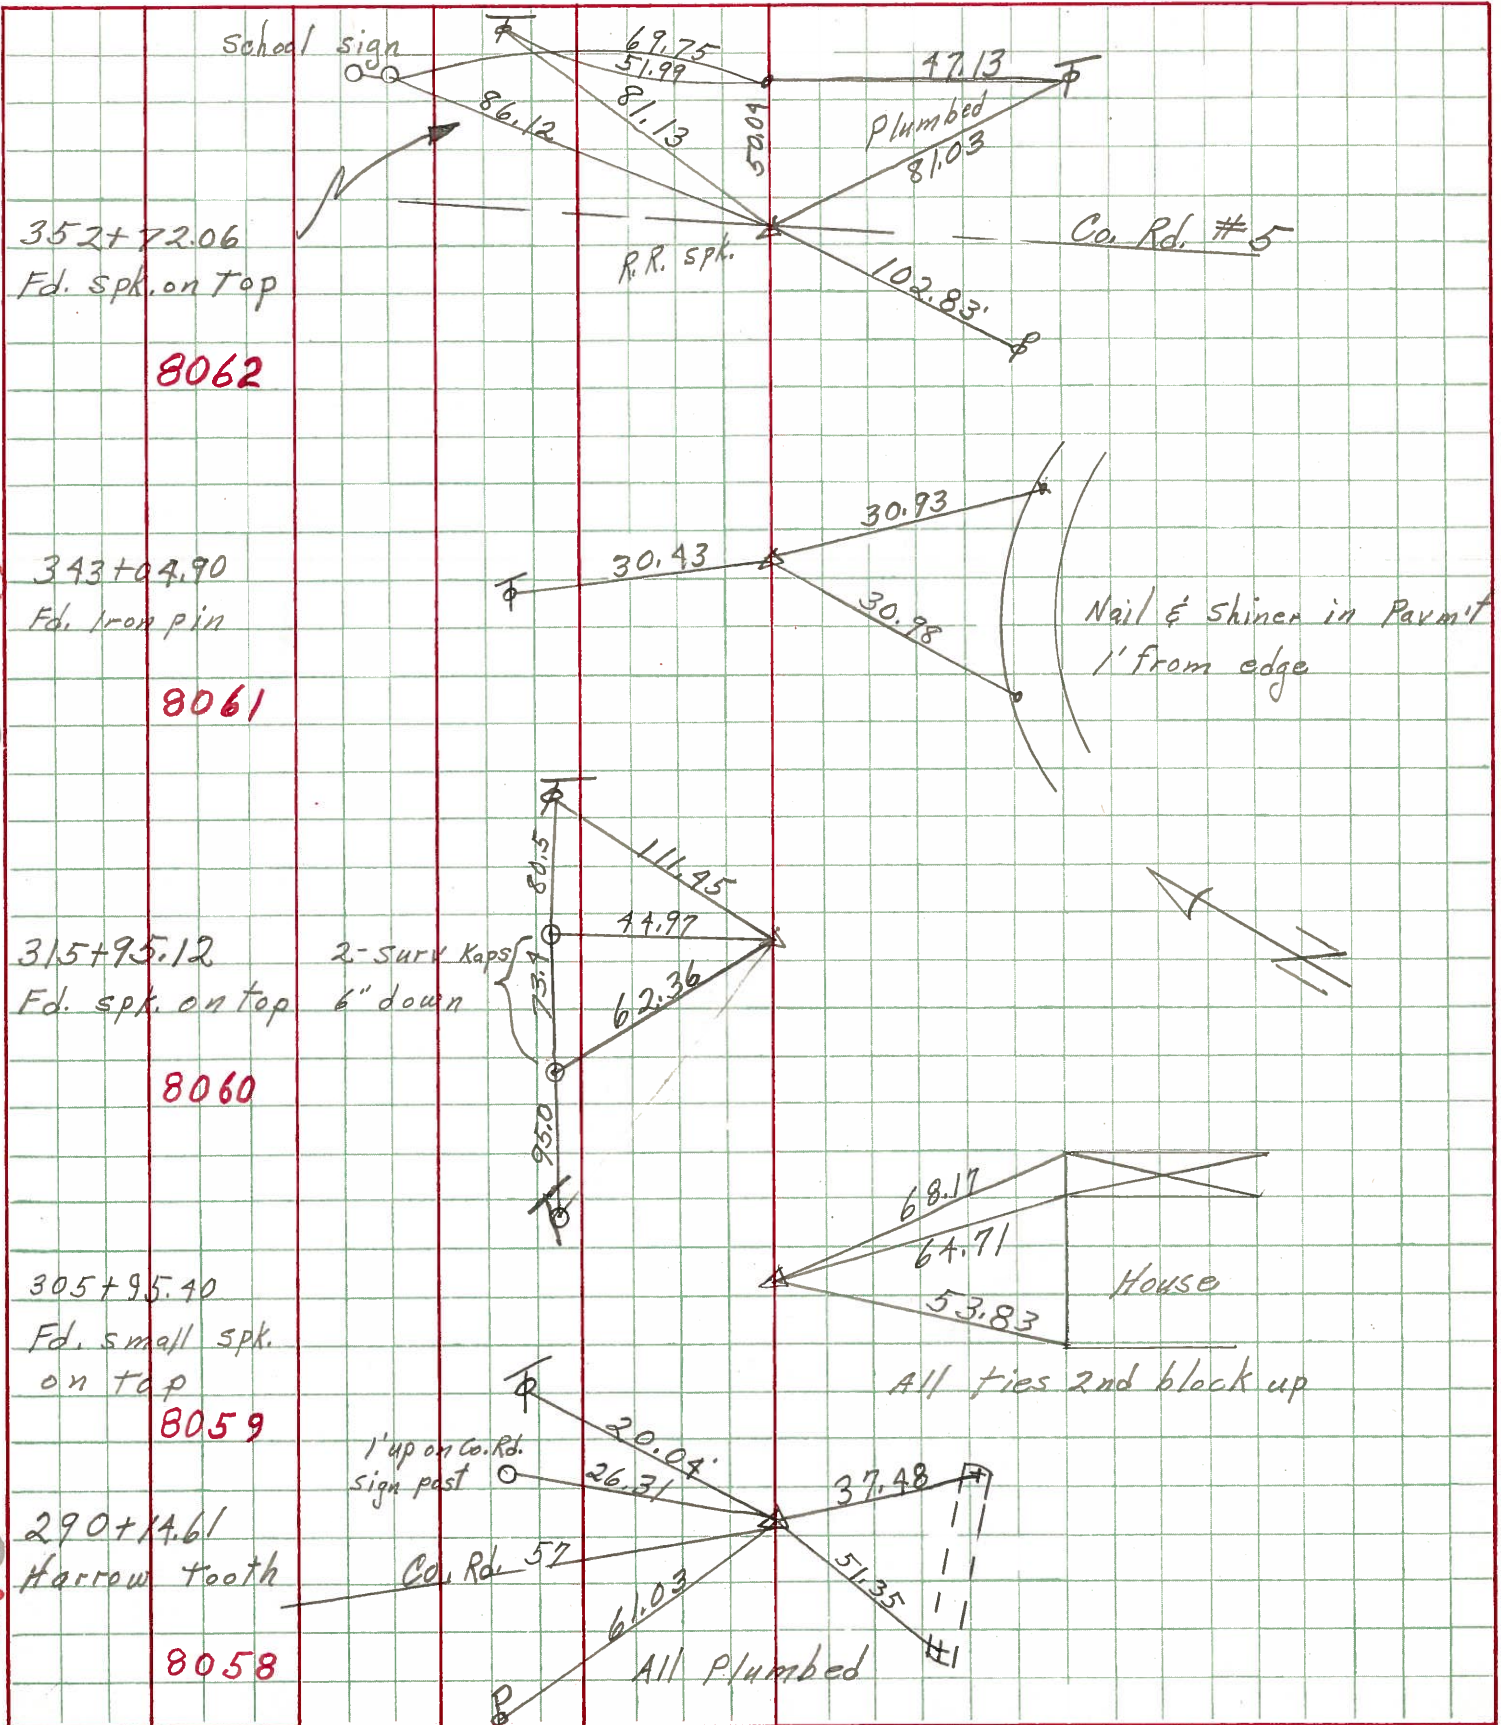 School sign
69.75
51.99
47.13
86.12
81.13
50.09
Plumbed
81.03
352+72.06
Fd. spk. on Top
R.R. spk.
Co. Rd. #5
102.83'
8062
30.93
30.43
343+04.90
Fd. Iron pin
30.98
Nail & Shiner in Pavm't
1' from edge
8061
80.5
111.45
44.97
315+95.12
Fd. spk. on top
2-Surv Kaps
6" down
73.9
62.36
8060
95.0
68.17
64.71
305+95.40
Fd. small spk.
on top
House
53.83
All ties 2nd block up
8059
20.04'
1' up on Co. Rd.
sign post
26.31
37.48
290+14.61
Harrow tooth
Co. Rd. 57
61.03
51.35
8058
All Plumbed